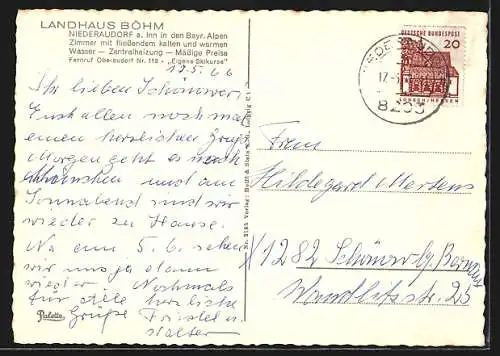 LANDHAUS BÖHM
NIEDERAUDORF a. Inn in den Bayr. Alpen
Zimmer mit fließendem kalten und warmen
Wasser — Zentralheizung — Mäßige Preise
Fernruf Oberaudorf Nr. 118 - „Eigene Skikurse"
17.5.66
Ihr lieben Schönower,
Euch allen nochmal
einen herzlichen Gruß.
Morgen geht es nach
und am
Sonnabend sind wir
wieder zu Hause.
Na am 5.6. sehen
wir uns ja dann
wieder. Nochmals
für alle herzliche
Grüße Friedel u.
Walter
Palette
Nr. 3185 Verlag:
DEUTSCHE BUNDESPOST
20
LORSCH/HESSEN
17.-5.
8203
Frau
Hildegard Mertens
X 1282 Schönow bg. Bernau
Wandlitzstr. 25